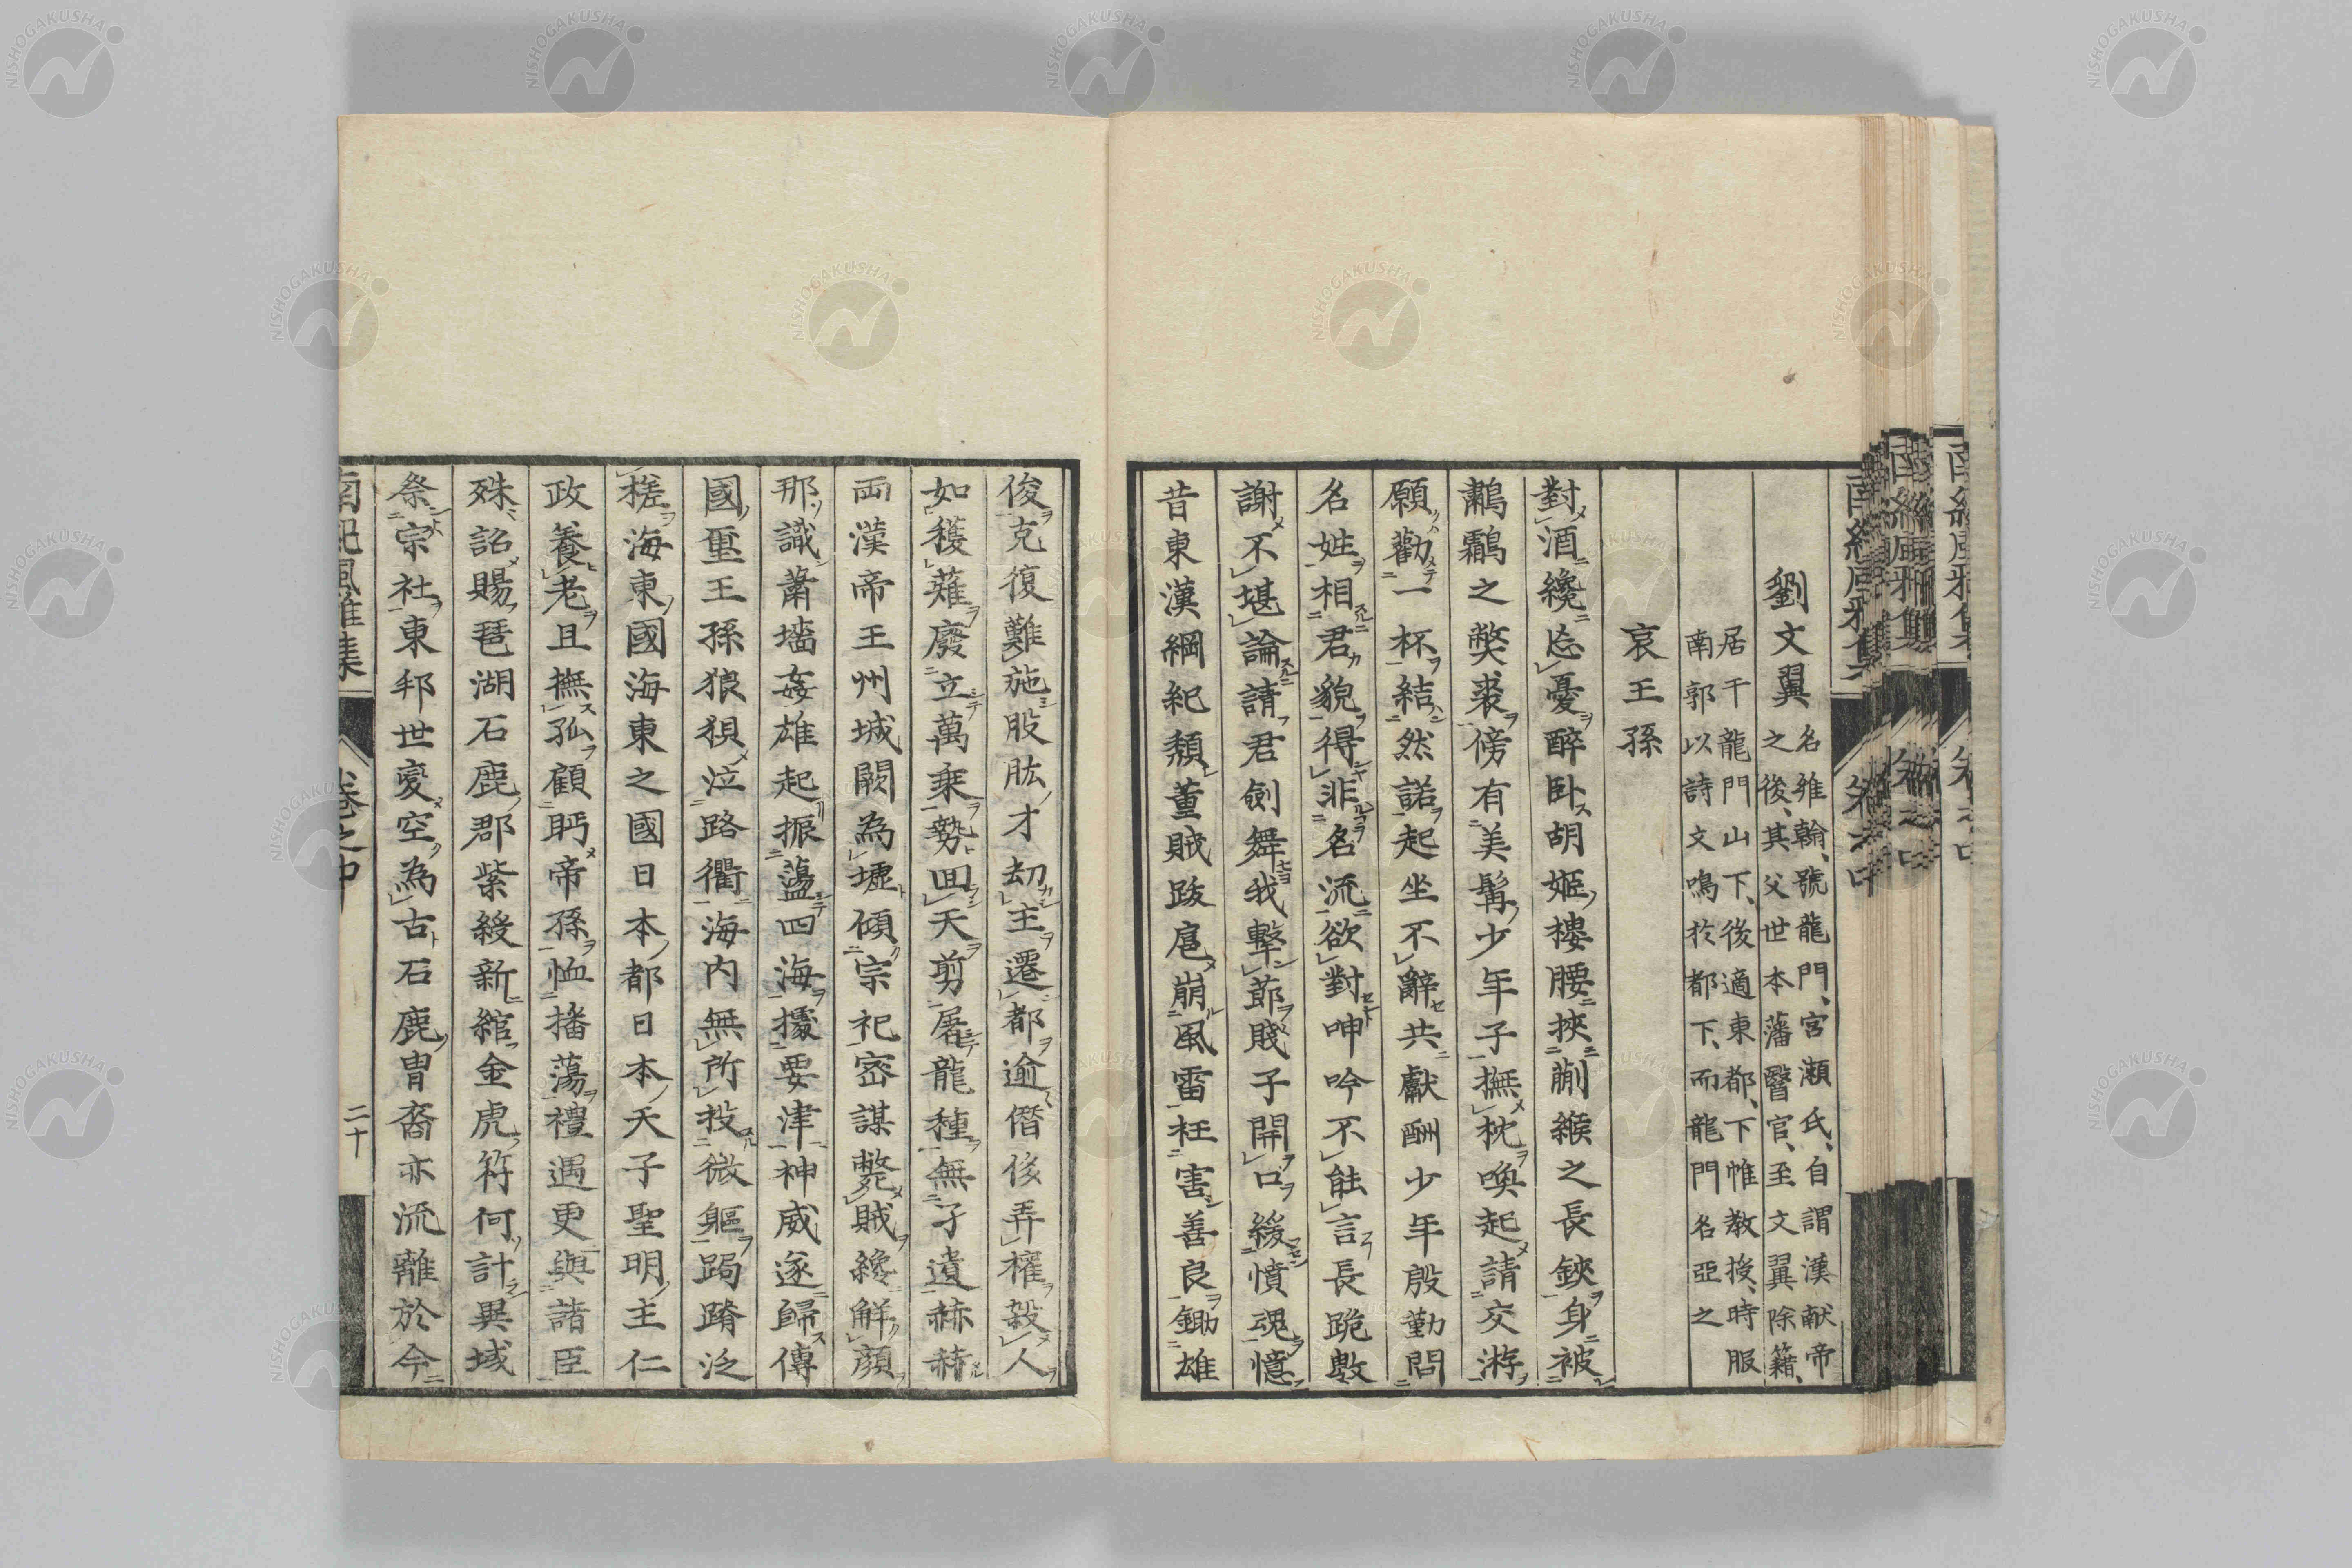 劉文翼
名維翰、號龍門、宮瀬氏、自謂漢献帝
之後、其父世本藩醫官、至文翼除籍、
居干龍門山下、後適東都、下帷教授、時服
南郭以詩文鳴於都下、而龍門名亞之
哀王孫
對酒纔忘憂醉卧胡姬樓腰挾蒯緱之長鋏身被
鷫鸘之獘裘傍有美髯少年子撫枕喚起請交游
願勸一杯結然諾起坐不辭共獻酬少年殷勤問
名姓相君貌得非名流欲對呻吟不能言長跪敷
謝不堪論請君劍舞我擊節賤子開口緩憤魂憶
昔東漢綱紀頽董賊跋扈崩風雷枉害善良鋤雄
俊克復難施股肱才刧主遷都逾僭侈弄權殺人
如穫薙廢立萬乘勢回天剪屠龍種無孑遺赫赫
兩漢帝王州城闕為墟傾宗祀宻謀斃賊纔解顔
那識蕭墻姦雄起振蕩四海據要津神威逐歸傳
國璽王孫狼狽泣路衢海内無所投微軀跼蹐泛
槎海東國海東之國日本都日本天子聖明主仁
政養老且撫孤顧眄帝孫恤播蕩禮遇更與諸臣
殊詔賜琶湖石鹿郡紫綬新綰金虎符何計異域
祭宗社東邦世變空為古石鹿冑裔亦流離於今
南紀風雅集
卷之中
二十